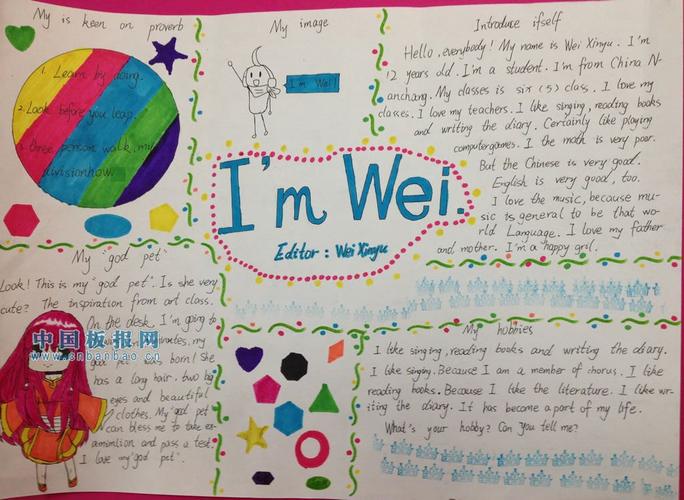 My is keen on proverb
1. Learn by doing.
2. Look before you leap.
3. three person walk, my
divisionhow.
My image
I'm Wei!
Introduce ifself
Hello, everybody! My name is Wei Xinyu. I'm
12 years old. I'm a student. I'm from China N-
anchang. My classes is six (5) class. I love my
classes. I love my teachers. I like singing, reading books
and writing the diary. Certainly like playing
computergames. I the math is very poor.
But the Chinese is very good.
English is very good, too.
I love the music, because mu-
sic is general to be that wo-
rld Language. I love my father
and mother. I'm a happy gril.
I'm Wei.
Editor: Wei Xinyu
My "god pet"
Look! This is my "god pet". Is she very
cute? The inspiration from art class.
On the desk, I'm going to
minutes, my
god was born! She
has a long hair. two big
eyes and beautiful
clothes. My "god pet
can bless me to take ex-
amimtion and pass a test.
I love my "god pet".
中国板报网
www.cnbanbao.cn
My hobnies
I like singing, reading books and writing the diary.
I like singing. Because I am a member of chorus. I like
reading books. Because I like the literature. I like wr-
iting the diary. It has become a part of my life.
What's your hobby? Can you tell me?